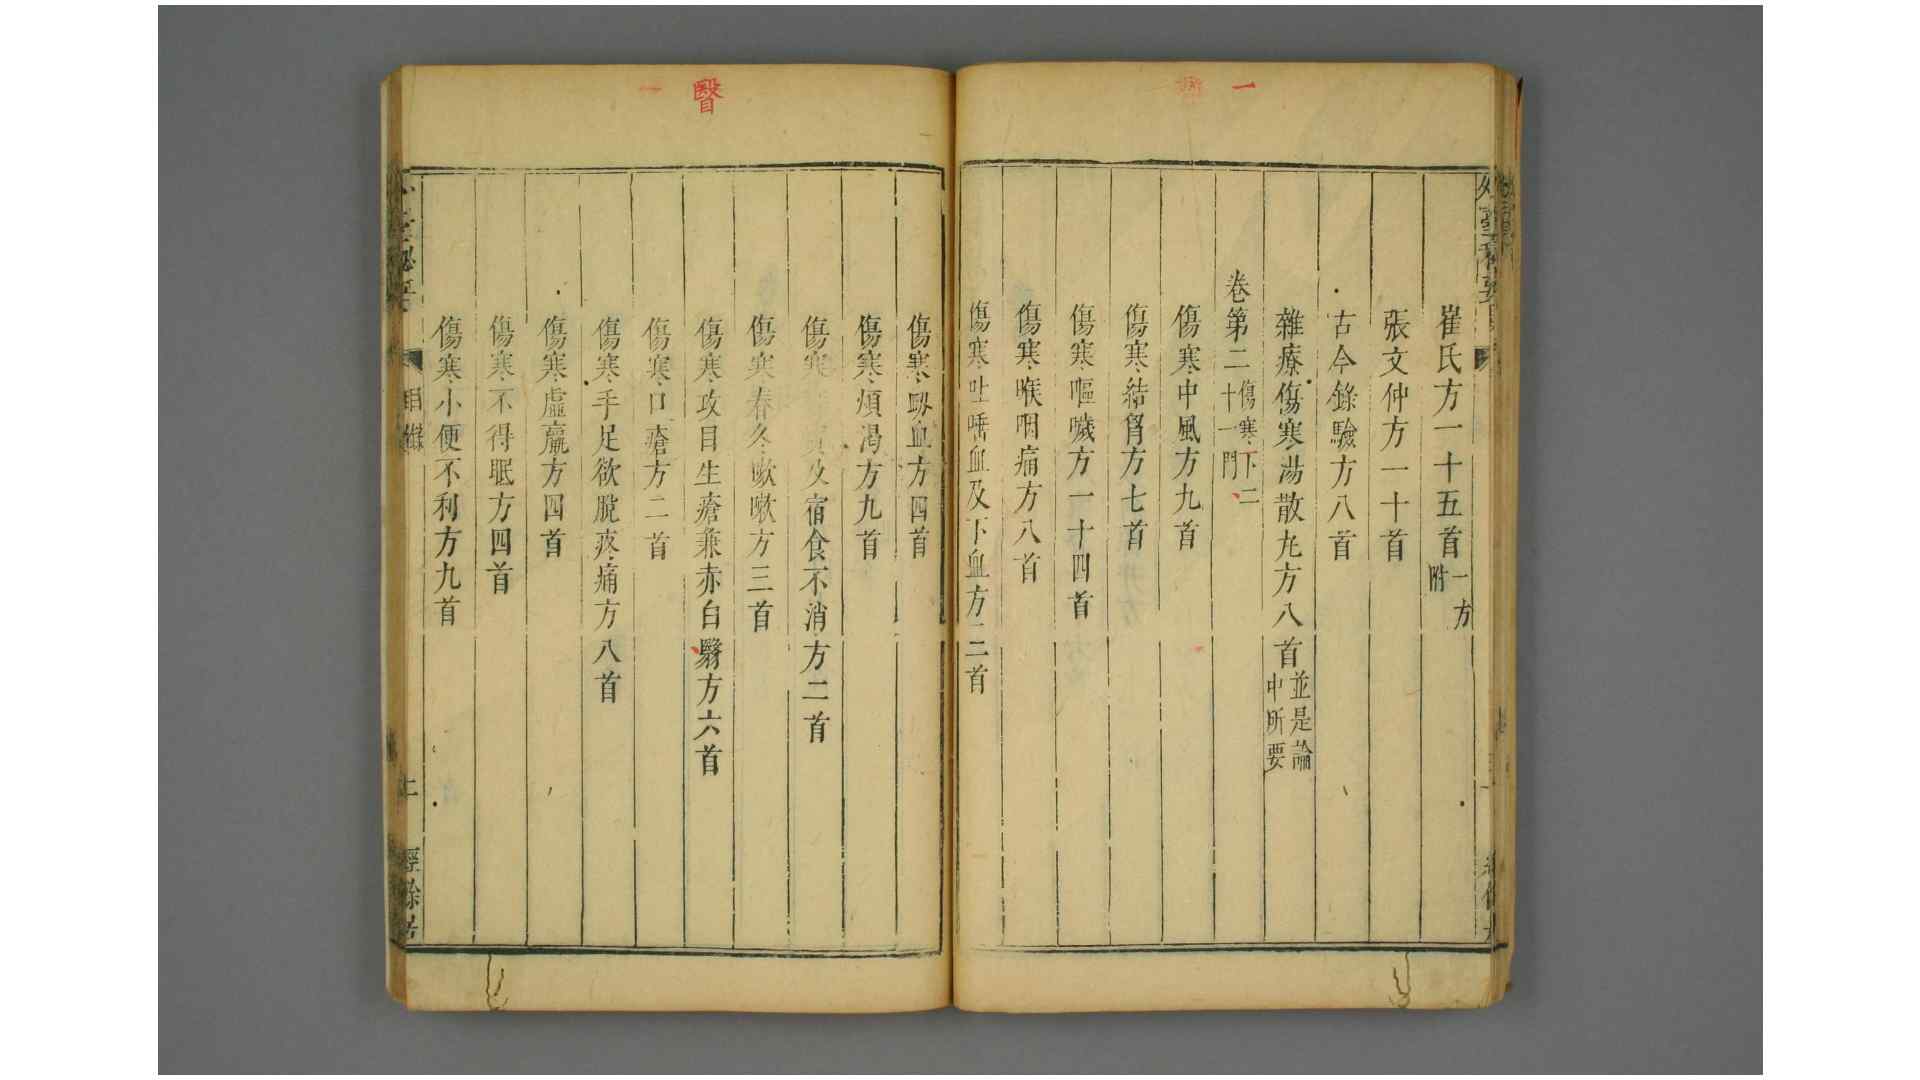 一
崔氏方一十五首一方附
張文仲方一十首
古今錄驗方八首
雜療傷寒湯散丸方八首並是論中所要
卷第二傷寒下二十一門
傷寒中風方九首
傷寒結胷方七首
傷寒嘔噦方一十四首
傷寒喉咽痛方八首
傷寒吐唾血及下血方三首
醫
傷寒衂血方四首
傷寒煩渴方九首
傷寒及宿食不消方二首
傷寒春冬嗽方三首
傷寒攻目生瘡兼赤白翳方六首
傷寒口瘡方二首
傷寒手足欲脫疼痛方八首
傷寒虛羸方四首
傷寒不得眠方四首
傷寒小便不利方九首
目錄
經餘居